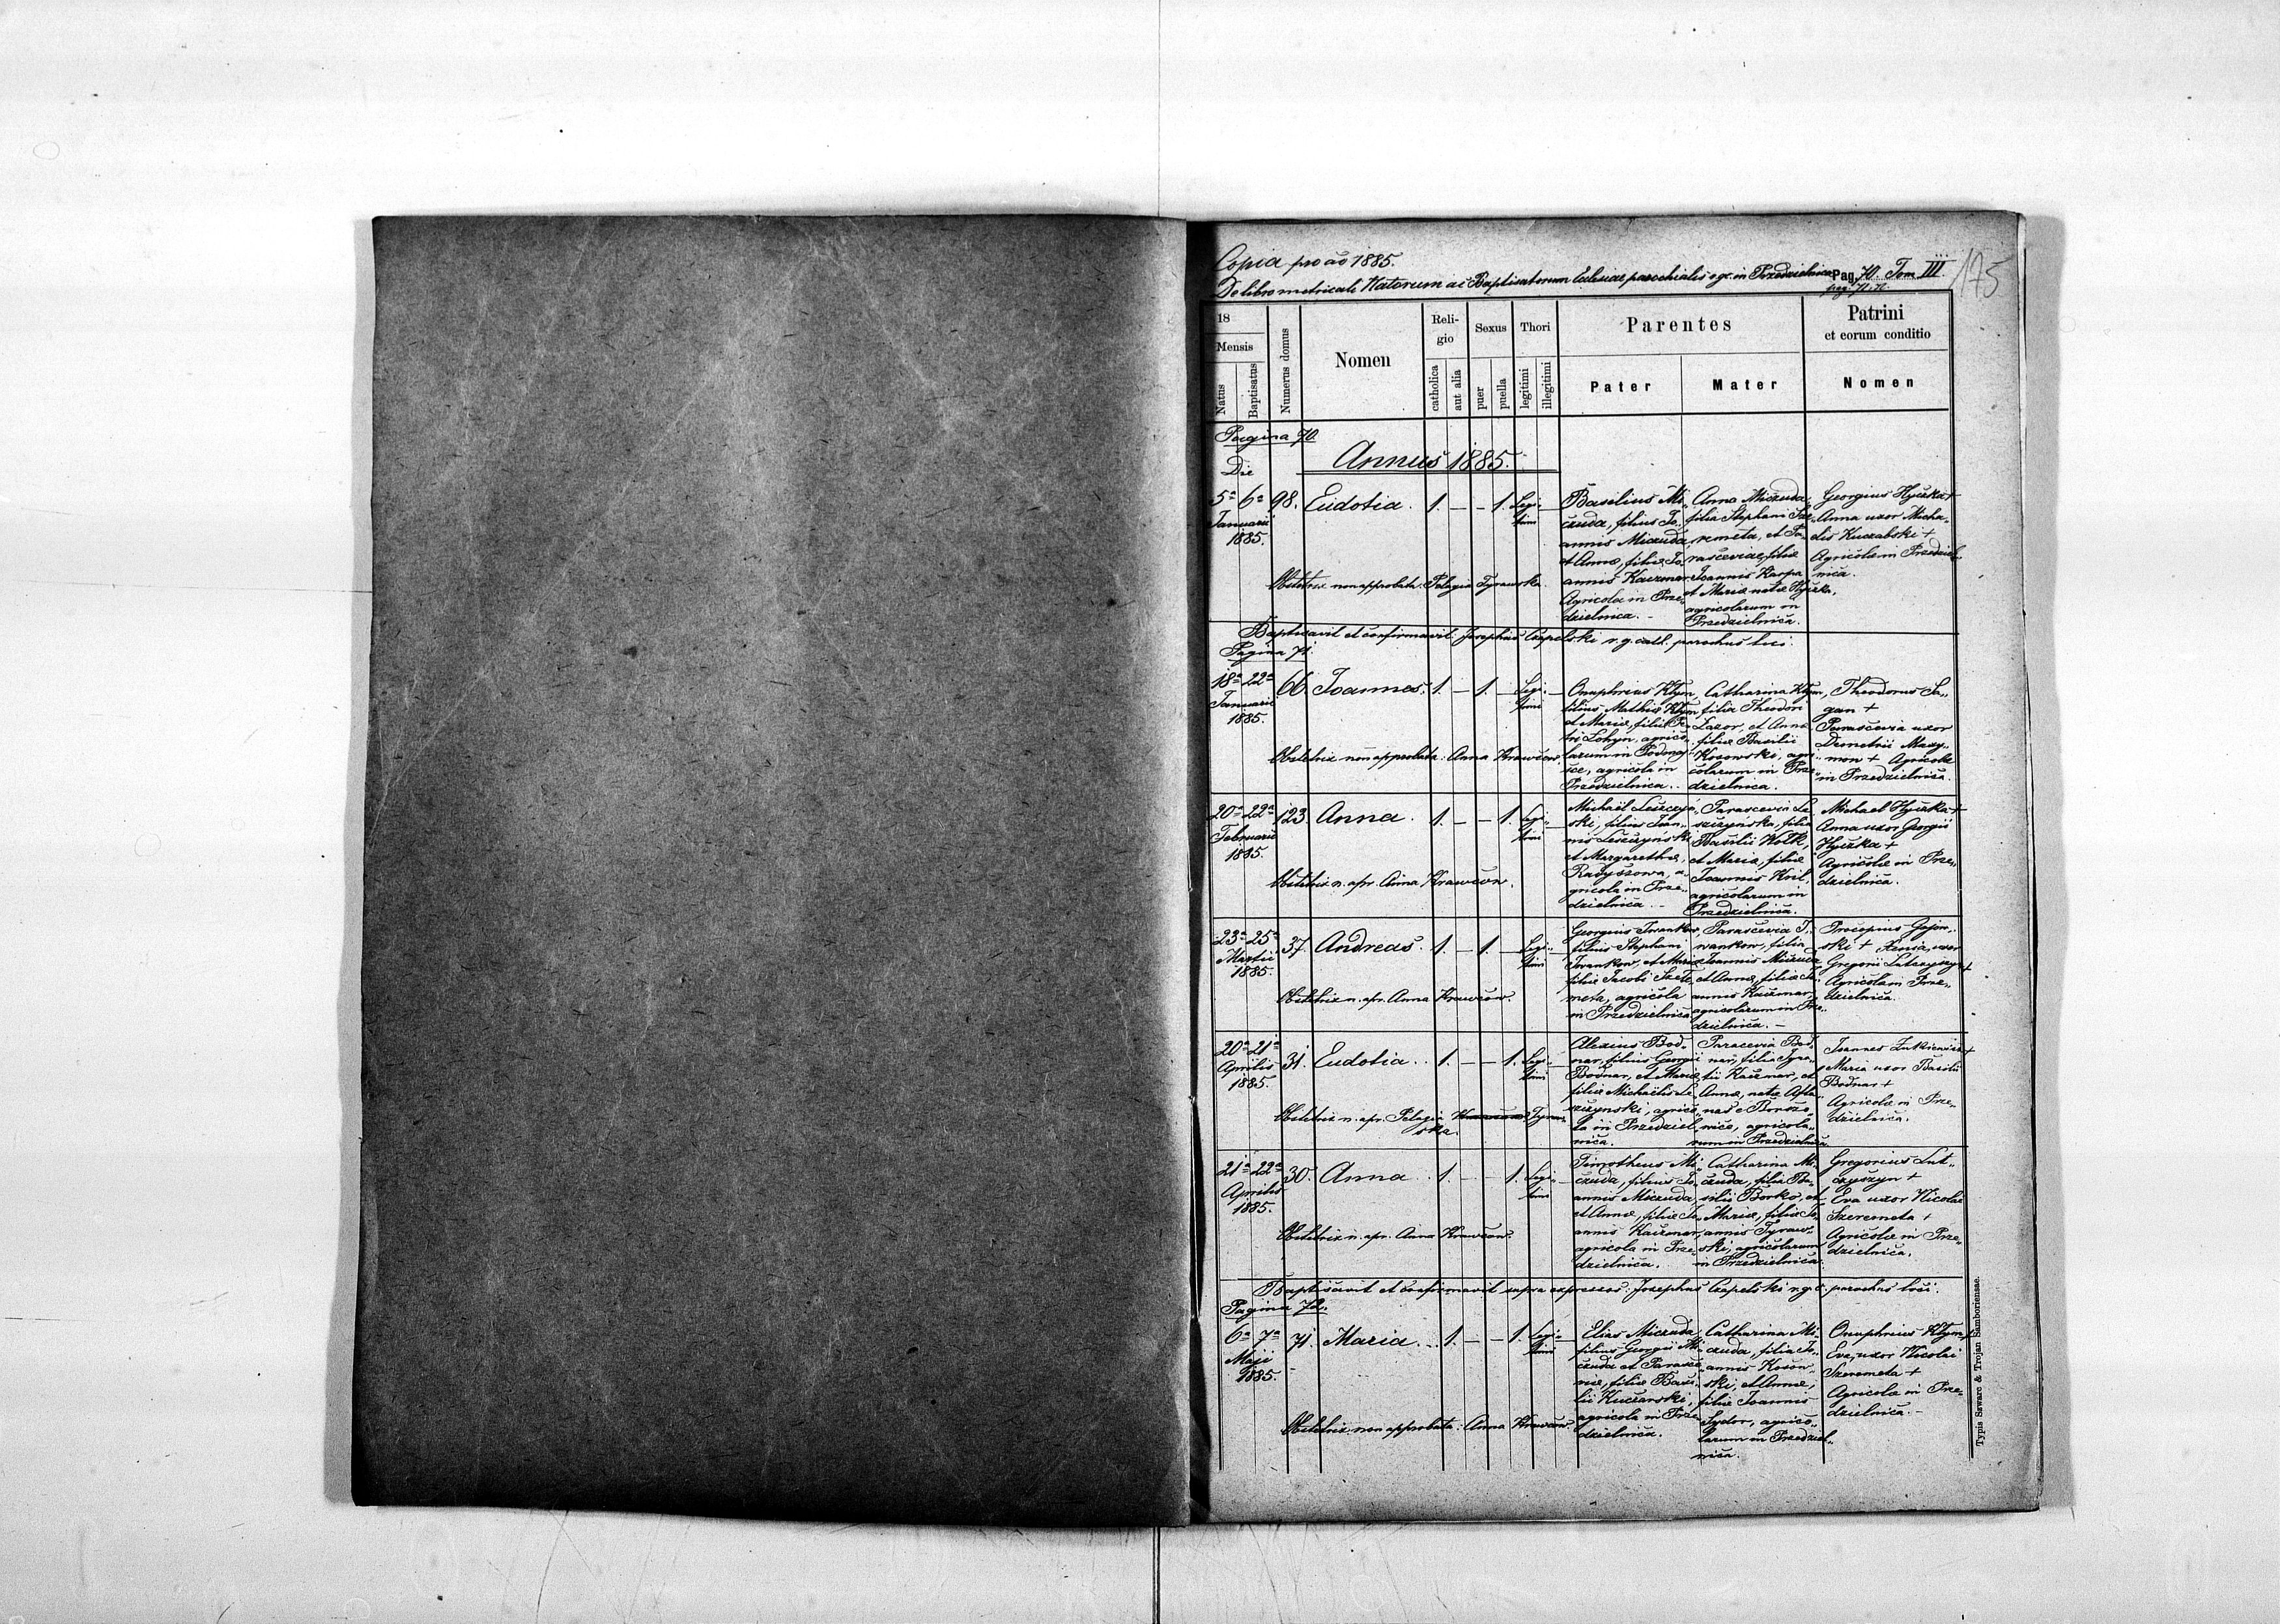 Copia pro ao 1885.
De libro metricali Natorum ac Baptisatorum Ecclesiae parochialis r. gr. in Przedzielnica Pag. 70. Tom III.
pag. 71. 72.
175
18
Mensis
Natus
Baptisatus
Numerus domus
Nomen
Religio
catholica
aut alia
Sexus
puer
puella
Thori
legitimi
illegitimi
Parentes
Pater
Mater
Patrini
et eorum conditio
Nomen
Pagina 70.
Die
Annus 1885.
5ª 6ª
Januarii
1885.
98. Eudotia. 1. — — 1. Legi-
timi
Basilius Mi-
czuda, filius Jo-
annis Miczuda,
et Annæ, filiæ Jo-
annis Kaczmar
Agricola in Prze-
dzielnica. –
Anna Miczuda,
filia Stephani Sze-
remeta, et Pa-
rasceviae, filiæ
Joannis Karpa
et Mariæ natæ Hyczka,
agricolarum in
Przedzielnica.
Georgius Hyczka +
Anna uxor Micha-
elis Kuczabski +
Agricolæ in Przedziel-
nica.
Obstetrix non approbata: Pelagia Tyrawska.
Baptisavit et confirmavit Josephus Czapelski r. g. cath. parochus loci.
Pagina 71.
18ª 22ª
Januarii
1885.
66. Joannes. 1. — 1. — Legi-
timi
Onuphrius Klym,
filius Mathiæ Klym
et Mariæ, filiæ Pe-
tri Lohyn, agrico-
larum in
agricola in
Przedzielnica.
Catharina Klym,
filia Theodori
Lazor, et Annæ
filiæ Basilii
Kosowski, agri-
colarum in Prze-
dzielnica.
Theodorus Sa-
gan +
Parascevia uxor
Demetrii Mazy-
mon + Agricolæ
in Przedzielnica.
Obstetrix non approbata: Anna Krawców.
20ª 22ª
Februarii
1885.
123. Anna. 1. — — 1. Legi-
timi
Michaël Leszczyń-
ski, filius Joan-
nis Leszczyński
et Margarethæ,
Radyszowa, a-
gricola in Prze-
dzielnica. –
Parascevia Le-
szczyńska, filia
Basilii Wołk,
et Mariæ, filiæ
Joannis Kril,
agricolarum in
Przedzielnica.
Michael Hyczka +
Anna uxor Georgii
Hyczka +
Agricolæ in Prze-
dzielnica.
Obstetrix n. apr. Anna Krawców.
23ª 25ª
Martii
1885.
37. Andreas. 1. — 1. — Legi-
timi
Georgius Iwanków,
filius Stephani
Iwanków, et Mariæ
filiæ Jacobi Szere-
meta, agricola
in Przedzielnica
Parascevia I-
wanków, filia
Joannis Miczuda
et Annæ, filiæ Jo-
annis Kaczmar,
agricolarum in Prze-
dzielnica. –
Procopius
ski + Xenia, uxor
Gregorii Lutczyszyn +
Agricolæ in Prze-
dzielnica.
Obstetrix n. apr. Anna Krawców.
20ª 21ª
Aprilis
1885.
31. Eudotia. 1. — — 1. Legi-
timi
Alexius Bod-
nar, filius Georgii
Bodnar, et Mariæ
filiæ Michaëlis Le-
szczynski, agrico-
la in Przedziel-
nica.
Paracevia Bod-
nar, filia Igna-
tii Kaczmar, et
Annæ, natæ
agricola-
rum in Przedzielnica.
Joannes +
Maria uxor Basilii
Bodnar +
Agricolæ in Prze-
dzielnica.
Obstetrix n. apr. Pelagia Krawców Tyraw-
ska.
21ª 22ª
Aprilis
1885.
30. Anna. 1. — — 1. Legi-
timi
Timotheus Mi-
czuda, filius Jo-
annis Miczuda,
et Annæ, filiæ Jo-
annis Kaczmar,
agricola in Prze-
dzielnica.
Catharina Mi-
czuda, filia Ba-
silii Borko, et
Mariæ, filiæ Jo-
annis Tyraw-
ski, agricolarum
in Przedzielnica.
Gregorius Lut-
czyszyn +
Eva uxor Nicolai
Szeremeta +
Agricolæ in Prze-
dzielnica.
Obstetrix n. apr. Anna Krawców.
Baptisavit et confirmavit supra expressos: Josephus Czapelski r. g. c. parochus loci.
Pagina 72.
6ª 7ª
Maji
1885.
71. Maria. 1. — — 1. Legi-
timi
Elias Miczuda,
filius Georgii Mi-
czuda et Parasce-
viæ, filiæ Basi-
lii Kuczarski,
agricola in Prze-
dzielnica.
Catharina Mi-
czuda, filia Jo-
annis Kosow-
ski, et Annæ,
filiæ Joannis
Sydor, agrico-
larum in Przedziel-
nica.
Onuphrius Klym +
Eva, uxor Nicolai
Szeremeta +
Agricolæ in Prze-
dzielnica. –
Obstetrix non approbata: Anna Krawców.
Typis Szwarc & Trojan Samboriensae.